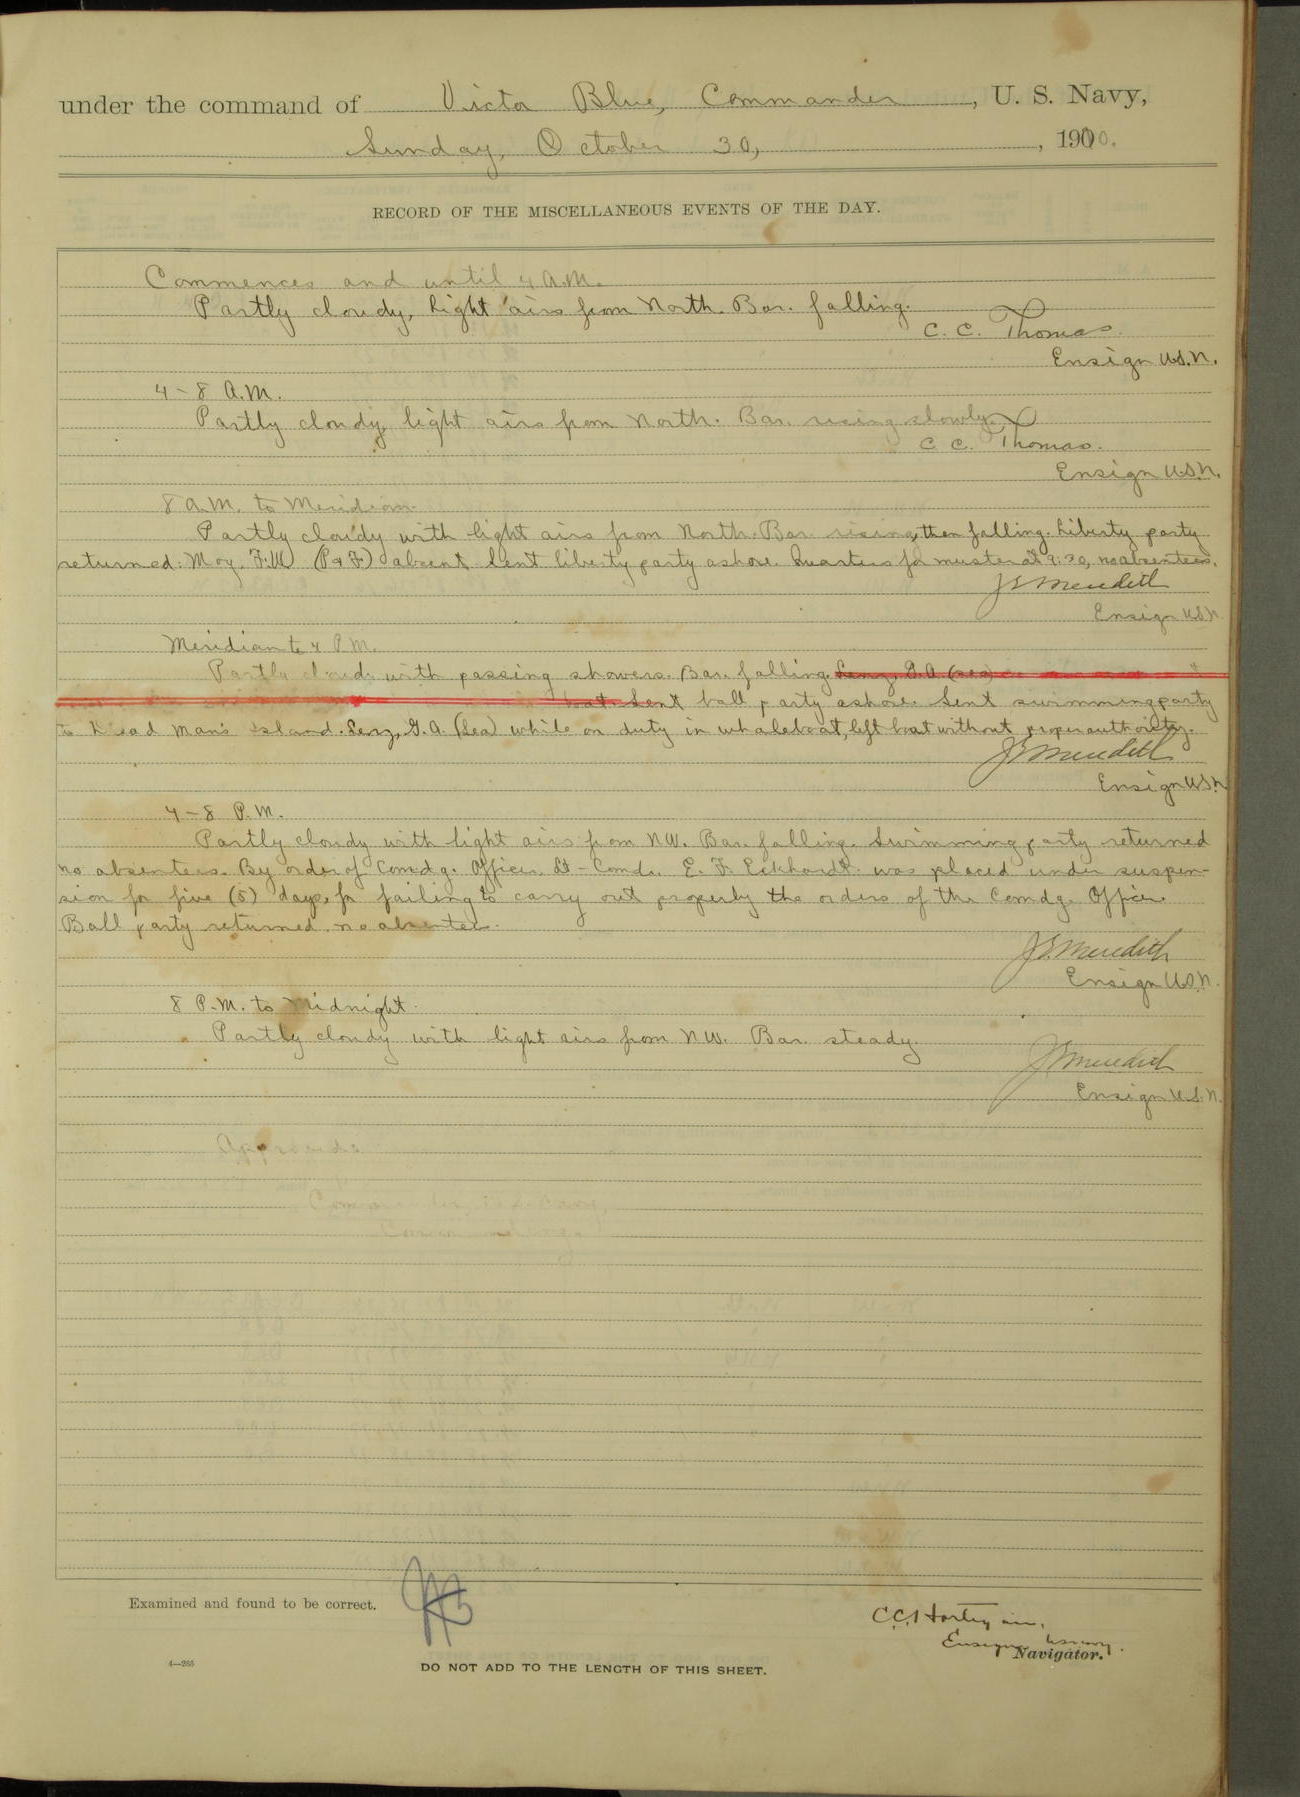 under the command of Victor Blue, Commander, U. S. Navy,
Sunday, October 30, 1910.
RECORD OF THE MISCELLANEOUS EVENTS OF THE DAY.
Commences and until 4 A.M.
Partly cloudy, light airs from North. Bar. falling.
C. C. Thomas.
Ensign U.S.N.
4-8 A.M.
Partly cloudy, light airs from North. Bar. rising slowly.
C C. Thomas.
Ensign U.S.N.
8 A.M. to Meridian.
Partly cloudy with light airs from North. Bar rising, then falling. Liberty party
returned: Moy. F.W (P & F) absent. Sent liberty party ashore. Quarters for muster at 9:30, no absentees.
J S Meredith
Ensign U.S.N
Meridian to 4 P.M.
Partly cloudy with passing showers. Bar. falling. Lenz, G.A. (sea)
boat. Sent ball party ashore. Sent swimming party
to Dead Man's Island. Lenz, G.A. (Sea) while on duty in whaleboat, left boat without proper authority.
J S Meredith
Ensign U.S.N
4-8 P.M.
Partly cloudy with light airs from NW. Bar. falling. Swimming party returned
no absentees. By order of Comdg. Officer, Lt-Comdr. E. F. Eckhardt was placed under suspen-
sion for five (5) days, for failing to carry out properly the orders of the Comdg. Officer.
Ball party returned no absentees.
J S. Meredith
Ensign U.S.N.
8 P.M. to Midnight.
Partly cloudy with light airs from NW. Bar. steady.
J S Meredith
Ensign U.S.N.
Approved:
Examined and found to be correct.
Navigator.
4—265
DO NOT ADD TO THE LENGTH OF THIS SHEET.